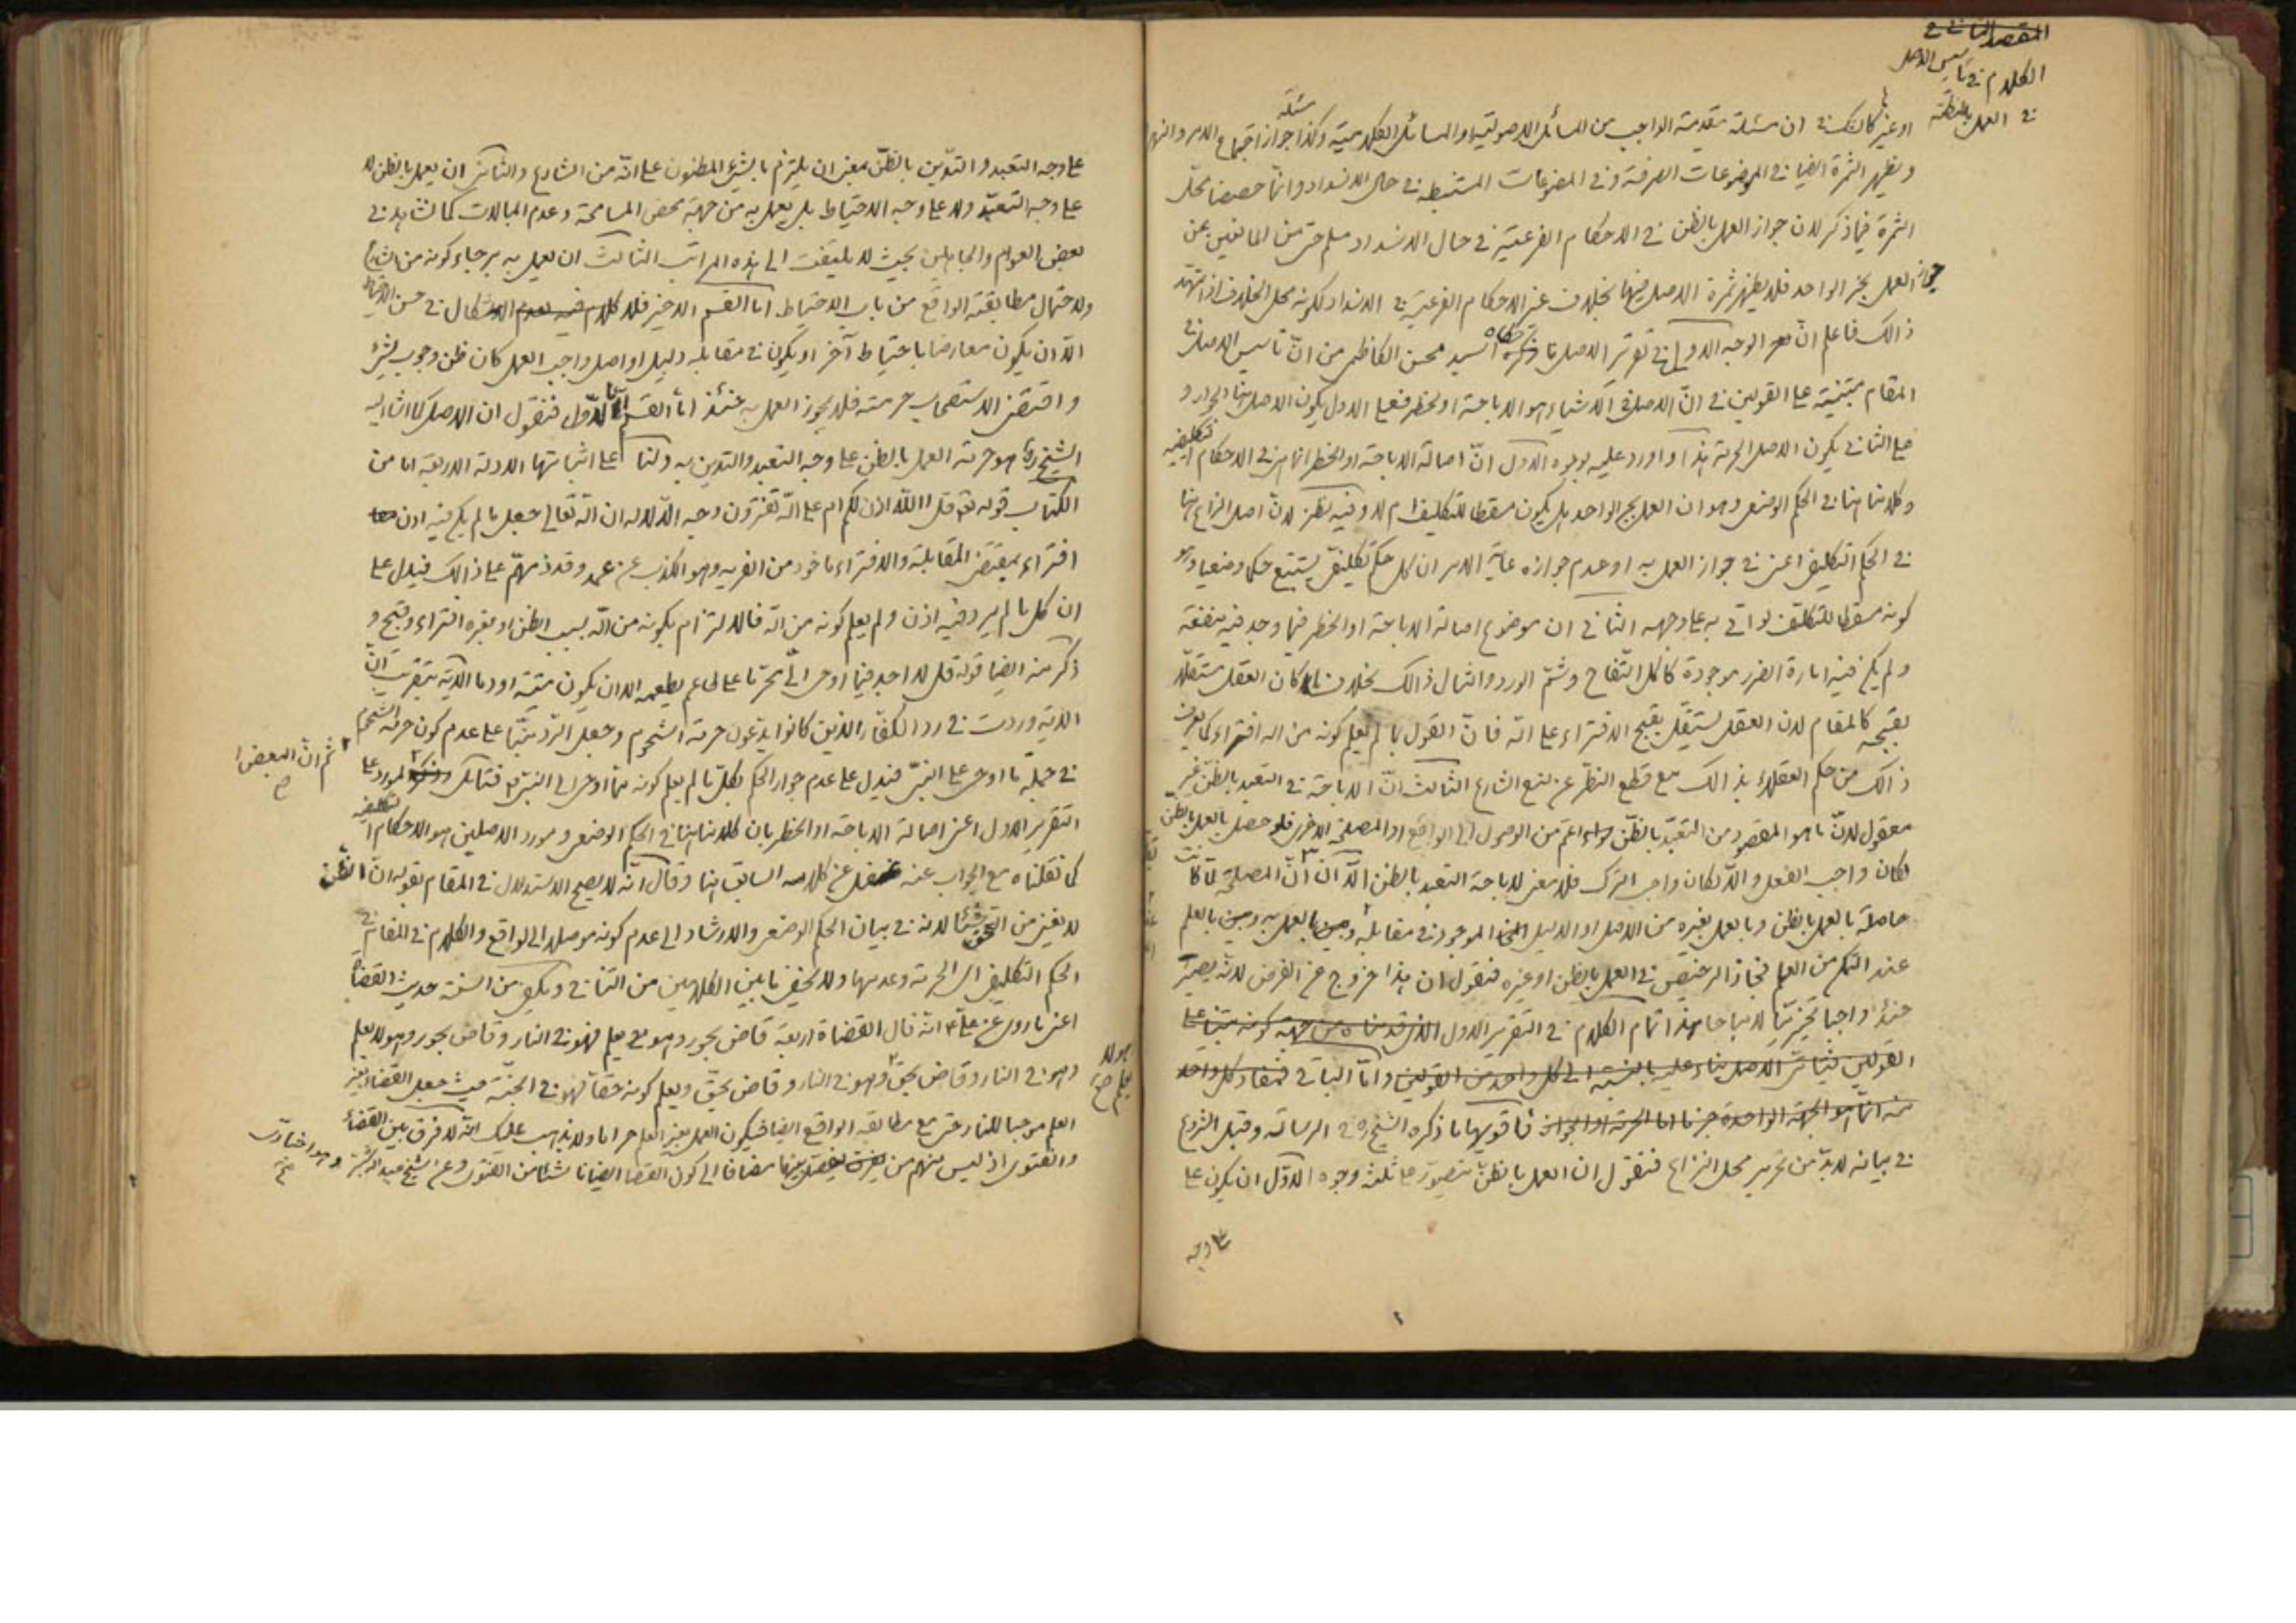 المقصد الثاني في
الكلام في تأسيس الاصل
في العمل بالمظنة
او غيرها كالشك في ان مسئلة مقدمة الواجب من المسائل الاصولية او المسائل الكلامية وكذا مسئلة جواز اجتماع الامر والنهى
ويظهر الثمرة ايضا في الموضوعات الصرفة وفي الموضوعات المستنبطة في حال الانسداد وانما خصصنا محل
الثمرة فيما ذكر لان جواز العمل بالظن في الاحكام الفرعية في حال الانسداد مسلم حتى من المانعين عن
جواز العمل بخبر الواحد فلا يظهر ثمرة الاصل فيها بخلاف غير الاحكام الفرعية في الانسداد لكونه محل الخلاف اذا تمهد
ذالك فاعلم ان الوجه الاول في تقرير الاصل ما حكاه السيد محسن الكاظمى من ان تأسيس الاصل في
المقام مبتنية على القولين في ان الاصل في الاشياء هو الاباحة او الحظر فعلى الاول يكون الاصل هنا الجواز و
على الثاني يكون الاصل الحرمة هذا واورد عليه بوجوه الاول ان اصالة الاباحة او الحظر انما هي في الاحكام التكليفية
وكلامنا هنا في الحكم الوضعى وهو ان العمل بخبر الواحد هل يكون مسقطا للتكليف ام لا وفيه نظر لان اصل النزاع هنا
في الحكم التكليفى اعنى في جواز العمل به او عدم جوازه غاية الامر ان كل حكم تكليفى يستتبع حكما وضعيا وهو
كونه مسقطا للتكليف لو اتى به على وجهه الثاني ان موضوع اصالة الاباحة او الحظر فيما وجد فيه منفعة
ولم يكن فيه امارة الضرر موجودة كاكل التفاح وشم الورد وامثال ذالك بخلاف ما كان العقل مستقلا
بقبحه كالمقام لان العقل يستقل بقبح الافتراء على الله فان القول بما لم يعلم كونه من الله افتراء كما يعرف
ذالك من حكم العقلاء بذالك مع قطع النظر عن منع الشارع الثالث ان الاباحة في التعبد بالظن غير
معقول لان ما هو المقصود من التعبد بالظن سواء اعم من الوصول الى الواقع او المصلحة الاخرى فلو حصل بالعمل بالظن
لكان واجب الفعل والا لكان واجب الترك فلا معنى لاباحة التعبد بالظن الا ان المصلحة لما كانت
حاصلة بالعمل بالظن وبالعمل بغيره من الاصل او الدليل الموجود في مقابله وبين العمل به وبين بالعلم
عند التمكن من العلم فجاز الترخيص في العمل بالظن او غيره فنقول ان هذا خروج عن الفرض لانه يصير
حينئذ واجبا تخييريا لا مباحا هذا تمام الكلام في التقرير الاول الذى قدمناه من جهة كونه مبنيا على
القولين فيتأتى الاصل بناء عليه بالنسبة الى كل واحد من القولين واما الباقي فمفاد كل واحد
منه انما هو الجهة الواحدة جزما اما الحرمة او الجواز فاقويها ما ذكره الشيخ ره في الرسالة وقبل الشروع
في بيانه لا بد من تحرير محل النزاع فنقول ان العمل بالظن يتصور على ثلثة وجوه الاول ان يكون على
على وجه
على وجه التعبد والتدين بالظن بمعنى ان يلتزم بالشئ المظنون على انه من الشارع والثاني ان يعمل بالظن لا
على وجه التعبد ولا على وجه الاحتياط بل يعمل به من جهة محض المسامحة وعدم المبالات كما نشاهد في
بعض العوام والجاهلين بحيث لا يلتفت الى هذه المراتب الثالث ان يعمل به برجاء كونه من الشارع
ولاحتمال مطابقة الواقع من باب الاحتياط اما القسم الاخير فلا كلام فيه بعدم الاشكال في حسن الاحتياط
الا ان يكون معارضا باحتياط آخر او يكون في مقابله دليل او اصل واجب العمل كان ظن وجوب شئ
واقتضى الاستصحاب حرمته فلا يجوز العمل به حينئذ اما القسم الاول فنقول ان الاصل كما اشار اليه
الشيخ ره هو حرمة العمل بالظن على وجه التعبد والتدين به ولنا على اثباتها الادلة الاربعة اما من
الكتاب قوله تعالى قل االله اذن لكم ام على الله تفترون وجه الدلالة ان الله تعالى جعل ما لم يكن فيه اذن
افتراء بمقتضى المقابلة والافتراء ماخوذ من الفرية وهو الكذب عن عمد وقد ذمهم على ذالك فيدل على
ان كل ما لم يرد فيه اذن ولم يعلم كونه من الله فالالتزام بكونه من الله بسبب الظن او بغيره افتراء وقبيح و
ذكر منه ايضا قوله قل لا اجد فيما اوحى الى محرما على طاعم يطعمه الا ان يكون ميتة او دما الآية بتقريب ان
الاية وردت في رد الكفار الذين كانوا يدعون حرمة الشحوم وجعل الرد مبنيا على عدم كون حرمة الشحوم
في جملة ما اوحى على النبى فيدل على عدم جواز الحكم بكل ما لم يعلم كونه مما اوحى الى النبى فتامل المورد على
ثم ان البعض
التقرير الاول اعنى اصالة الاباحة او الحظر بان كلامنا هنا في الحكم الوضعى ومورد الاصلين هو الاحكام التكليفية
كما نقلناه مع الجواب عنه غفل عن كلامه السابق هنا وقال انه لا يصح الاستدلال في المقام بقوله ان الظن
لا يغنى من الحق شيئا لانه في بيان الحكم الوضعى والارشاد الى عدم كونه موصلا الى الواقع والكلام في المقام في
الحكم التكليفى اى الحرمة وعدمها ولا يخفى ما بين الكلامين من التنافي ويكفى من السنة حديث القضاة
اعنى ما روى عن على انه قال القضاة اربعة قاض بجور وهو يعلم فهو في النار وقاض بجور وهو لا يعلم
وهو في النار وقاض بحق وهو في النار وقاض بحق ويعلم كونه حقا فهو في الجنة حيث جعل القضاء بغير
هو لا
يعلم
العلم موجبا للنار حتى مع مطابقة الواقع ايضا فيكون العمل بغير العلم حراما ولا يذهب عليك انه لا فرق بين القضاء
والفتوى اذ ليس منهم من يفصل بينهما مضافا الى كون القضا ايضا ناشئا من الفتوى وعن الشيخ